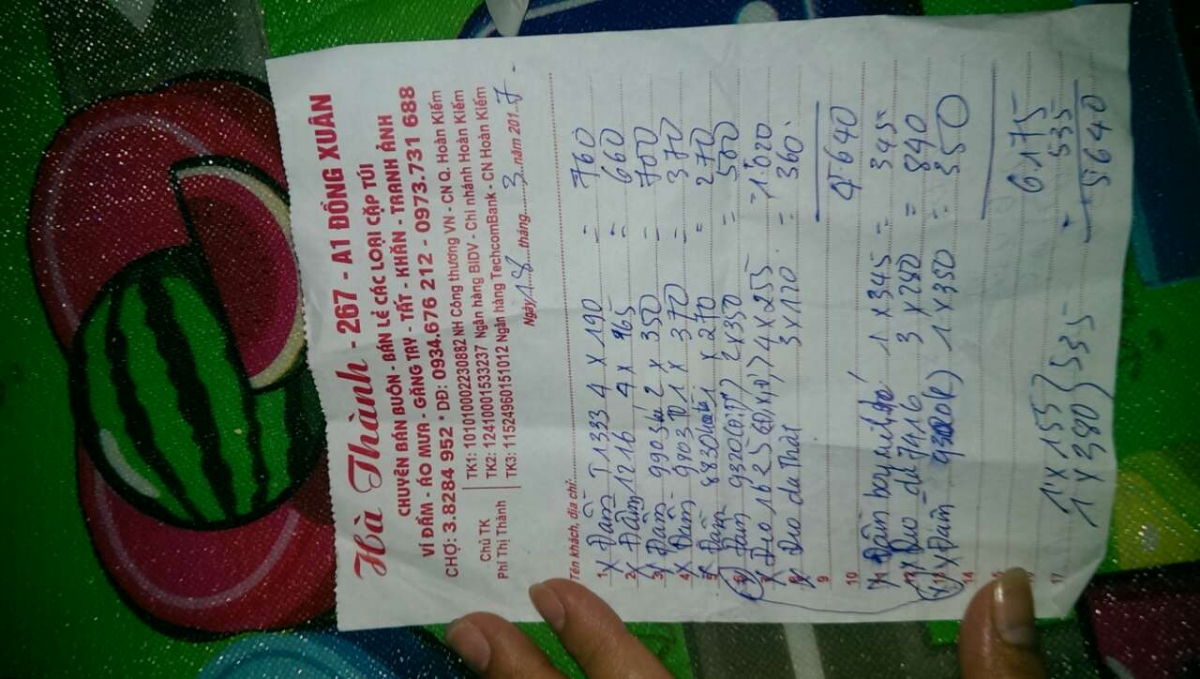 Hà Thành - 267 - A1 ĐỒNG XUÂN
CHUYÊN BÁN BUÔN - BÁN LẺ CÁC LOẠI CẶP TÚI
VÍ ĐẦM - ÁO MƯA - GĂNG TAY - TẤT - KHĂN - TRANH ẢNH
CHỢ: 3.8284 952 * DĐ: 0934.676 212 - 0973.731 688
Chủ TK
Phí Thị Thành
TK1: 101010002230882 NH Công thương VN - CN Q. Hoàn Kiếm
TK2: 12410001533237 Ngân hàng BIDV - Chi nhánh Hoàn Kiếm
TK3: 11524960151012 Ngân hàng TechcomBank - CN Hoàn Kiếm
Ngày 18 tháng 3 năm 2017
Tên khách, địa chỉ:
1 x Đầm T1333 4 x 190 = 760
2 x Đầm 1216 4 x 165 = 660
3 x Đầm 990 2 x 350 = 700
4 x Đầm 1 x 370 = 370
5 x Đầm 8830 x 270 = 270
6 x Đầm 9320 2 x 350 =
7 x Đeo 1625 4 x 255 = 1.020
8 x Đeo da 3 x 120 = 360
9
4.640
10
x Đầm 1 x 345 = 345
x Đeo da 7416 3 x 280 = 840
x Đầm 1 x 350 = 350
14
6.175
1 x 155
1 x 380 } 535
17
535
5640